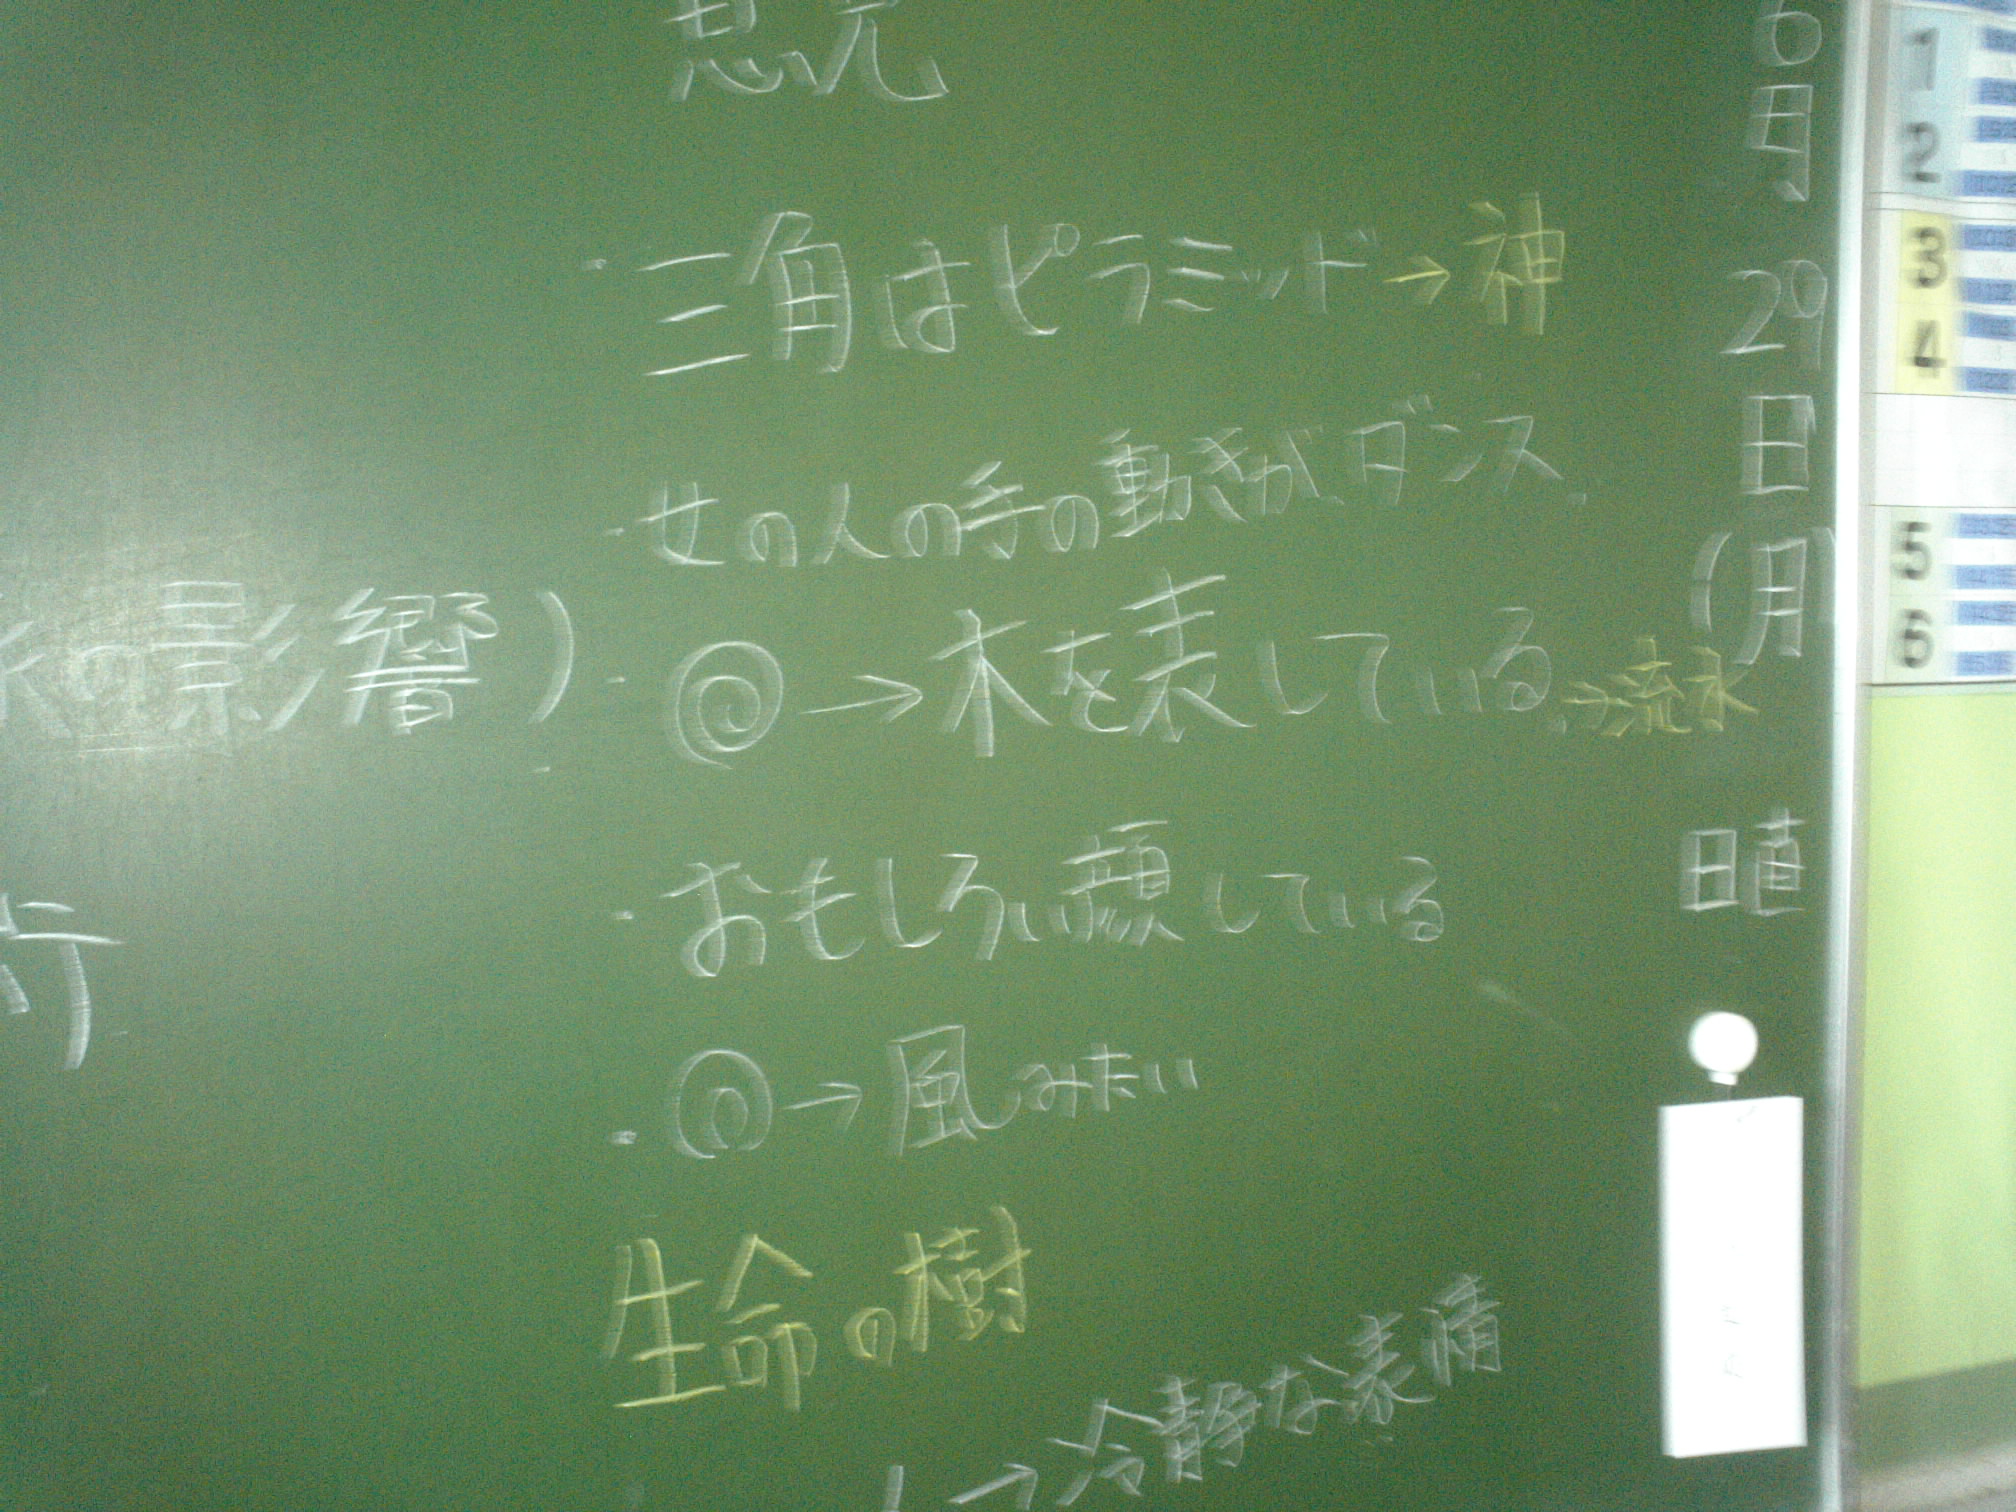 ・三角はピラミッド→神
・女の人の手の動きがダンス。
・→木を表している。→流水
・おもしろい顔している
・→風みたい
生命の樹
→冷静な表情
の影響)
6月29日(月)
日直
1
2
3
4
5
6